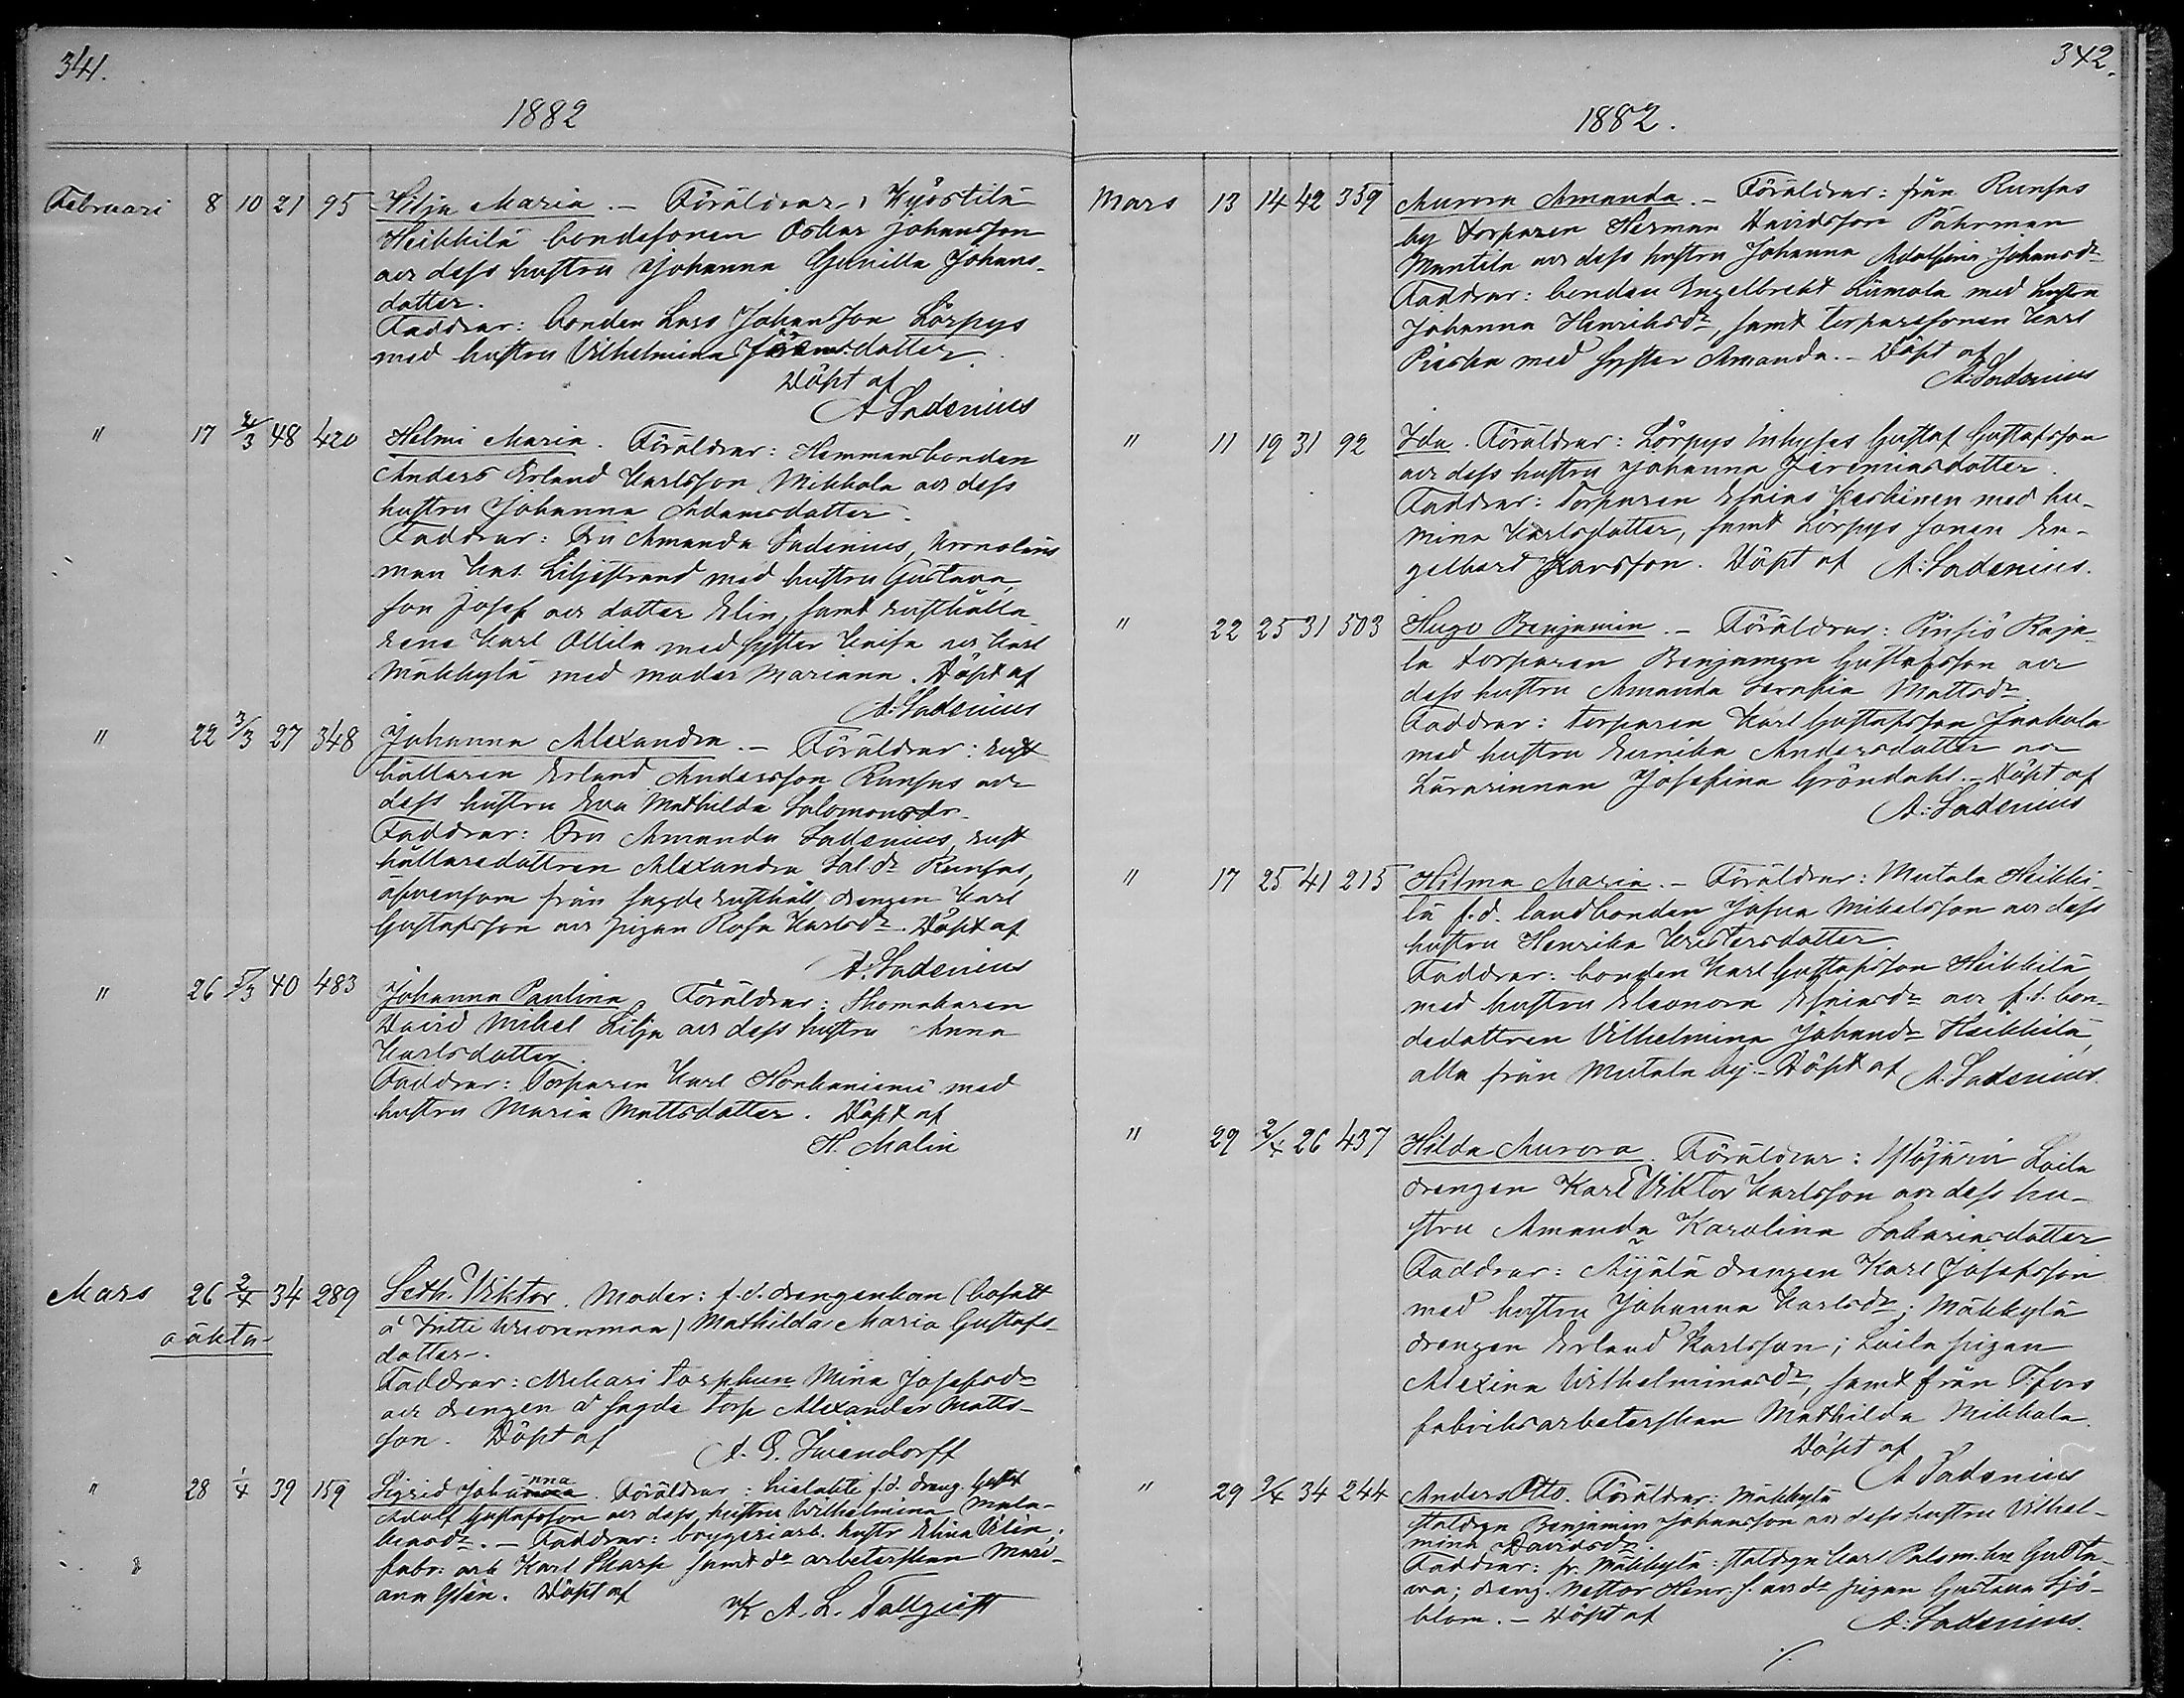 341.
1882
Februari 8 10 21 95 Hilja Maria. – Föräldrar: Kyöstilä
Heikkilä bondesonen Oskar Johansson
och dess hustru Johanna Gunilla Johans-
dotter.
Faddrar: bonden Lars Johansson Lörpys
med hustru Vilhelmina dotter.
Döpt af
A Ladenius
" 17 2/3 48 420 Helmi Maria. Föräldrar: Hemmansbonden
Anders Erland Karlsson Mikkola och dess
hustru Johanna Adamsdotter.
Faddrar: Fru Amanda Ladenius, Kronoläns
man Liljestrand med hustru Gustava,
son Josef och dotter Elin, samt rusthålla-
rene Karl Ollila med syster Kaisa och Karl
Mäkkylä med moder Mariana. Döpt af
A: Ladenius
" 22 3/3 27 348 Johanna Alexandra. – Föräldrar: rust
hållaren Erland Andersson Runsas och
dess hustru Eva Mathilda Salomonsdr.
Faddrar: Fru Amanda Ladenius, rust
hållaredottren Alexandra Sal.dr Runsas,
äfvensom från sagde rusthåll drengen Karl
Gustafsson och pigan Rosa Karlsdr. Döpt af
A: Ladenius
" 26 5/3 40 483 Johanna Paulina. Föräldrar: Skomakaren
David Mikel Lilja och dess hustru Anna
Karlsdotter.
Faddrar: Torparen Karl Honkaniemi med
hustru Maria Mattsdotter. Döpt af
H. Malin
Mars 26 2/4 34 289 Seth Viktor. Moder: f.d. drengenkan (bosatt
oäkta
å) Mathilda Maria Gustafs-
dotter.
Faddrar: torpkun Mina Josefsdr
och drengen å sagde torp Alexander Matts-
son. Döpt af A. G. Zwendorff
" 28 1/4 39 159 Sigrid Johanna. Föräldrar: f.d. dreng. Gust
Adolf Gustafsson och dess hustru Wilhelmina
– Faddrar: bryggeriarb. hustr Elina
fabr: arb Karl Skarp samt do arbeterskan Mari-
ana Döpt af A. L. Tallqvist
342.
1882.
Mars 13 14 42 359 Aurora Amanda. – Föräldrar: från Runsas
by torparen Herman Davidsson Pährman
Muntila och dess hustru Johanna Adolfina Johansdr
Faddrar: bonden Engelbrekt Liimola med hustru
Johanna Henriksdr, samt torparesonen Karl
med syster Amanda. – Döpt af
A: Ladenius
" 11 19 31 92 Ida. Föräldrar: Lörpys inhyses Gustaf Gustafsson
och dess hustru Johanna Jeremiasdotter.
Faddrar: Torparen Esaias Keskinen med hu-
Mina Karlsdotter, samt Lörpys sonen En-
gelbard Davsson. Döpt af A: Ladenius.
" 22 25 31 503 Hugo Benjamin. – Föräldrar: Pinsiö Raja-
la torparen Benjamin Gustafsson och
dess hustru Amanda Serafia Mattsdr
Faddrar: torparen Karl Gustafsson Jaakola
med hustru Eerika Andersdotter och
Lärarinnan Josefina Gröndahl. – Döpt af
A: Ladenius
" 17 25 41 215 Hilma Maria. – Föräldrar: Mutala Heikki-
lä f.d. landbonden Josua Mikelsson och dess
hustru Henrika Kristersdotter
Faddrar: bonden Karl Gustafsson Heikkilä
med hustru Eleonora Esaiasdr och f.d. bon-
dedottren Vilhelmina Johansdr Heikkilä,
alla från Mutala by. Döpt af A. Ladenius.
" 29 2/4 26 437 Hilda Aurora. Föräldrar: Ylöjärvi Laila
drengen Karl Viktor Karlsson och dess hu-
stru Amanda Karolina Sakariasdotter
Faddrar: Äijälä drengen Karl Josefsson
med hustru Johanna Karlsdr; Mäkkylä
drengen Erland Karlsson; Laila pigan
Alexina Vilhelminasdr, samt från T:fors
fabriksarbeterskan Mathilda Mikkola.
Döpt af
A Ladenius
" 29 9/4 34 244 Anders Otto. Föräldrar: Mäkkylä
staldrgn Benjamin Johansson och dess hustru Vilhel-
mina Davidsdr
Faddrar: fr. Mäkkylä: staldrgn Karl Palm m. hu Gusta-
va; dreng. Nestor Henr. s. och do pigan Gustava Sjö-
blom. – Döpt af A: Ladenius.